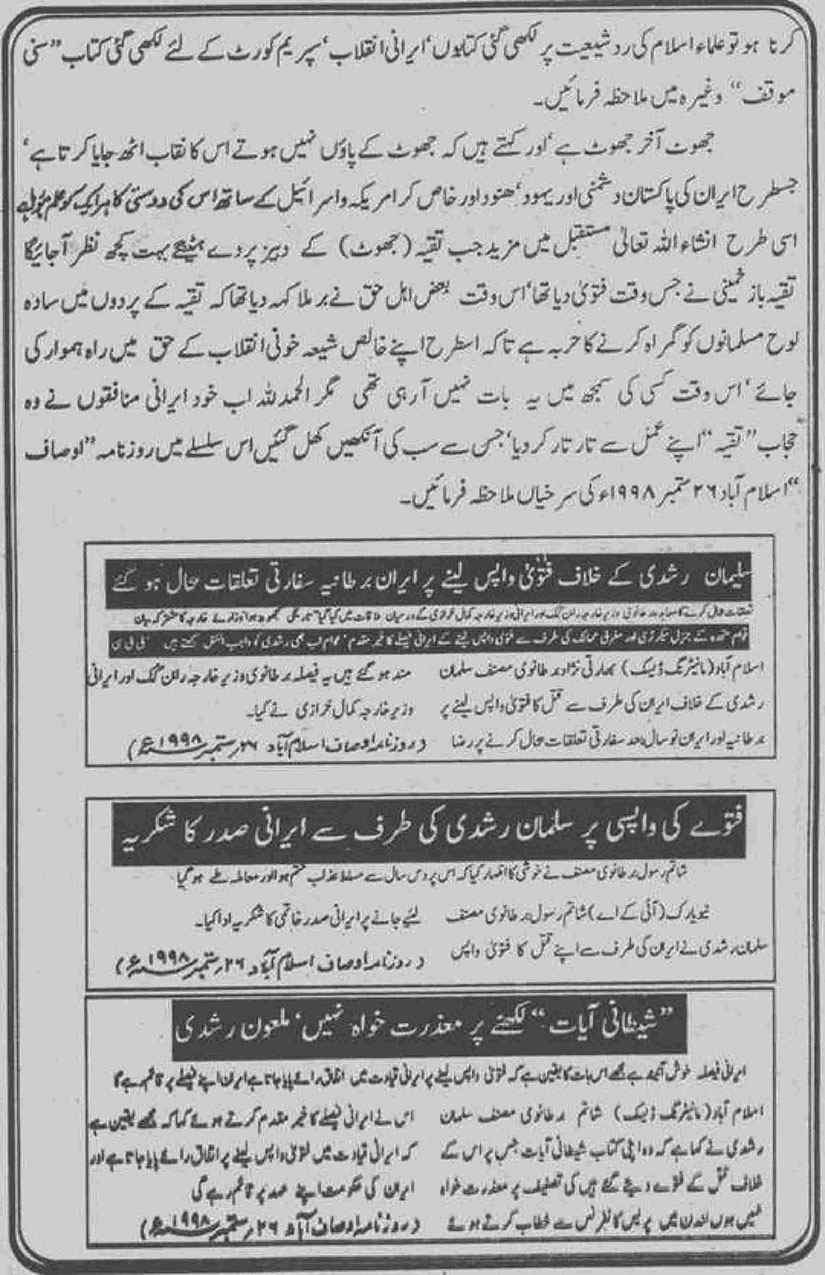 کرنا ہو تو علماء اسلام کی رد شیعیت پر لکھی گئی کتابوں ‘ایرانی انقلاب‘ سپریم کورٹ کے لئے لکھی گئی کتاب ”سنی
موقف“ وغیرہ میں ملاحظہ فرمائیں۔
جھوٹ آخر جھوٹ ہے‘ اور کہتے ہیں کہ جھوٹ کے پاؤں نہیں ہوتے اس کا نقاب اٹھ جایا کرتا ہے‘
جسطرح ایران کی پاکستان دشمنی اور یہود‘ ھنود اور خاص کر امریکہ و اسرائیل کے ساتھ اس کی دوستی کا ہر ایک کو علم ہو
اسی طرح انشاء اللہ تعالیٰ مستقبل میں مزید جب تقیہ (جھوٹ) کے دبیز پردے ہٹینگے بہت کچھ نظر آجائیگا
تقیہ باز خمینی نے جس وقت فتویٰ دیا تھا‘ اس وقت بعض اہل حق نے برملا کہہ دیا تھا کہ تقیہ کے پردوں میں سادہ
لوح مسلمانوں کو گمراہ کرنے کا حربہ ہے تاکہ اسطرح اپنے خالص شیعہ خونی انقلاب کے حق میں راہ ہموار کی
جائے‘ اس وقت کسی کی سمجھ میں یہ بات نہیں آرہی تھی مگر الحمد للہ اب خود ایرانی منافقوں نے وہ
حجاب ”تقیہ“ اپنے عمل سے تار تار کر دیا‘ جس سے سب کی آنکھیں کھل گئیں اس سلسلے میں روزنامہ ”اوصاف
“اسلام آباد ۲۶ ستمبر ۱۹۹۸ء کی سرخیاں ملاحظہ فرمائیں۔
سلیمان رشدی کے خلاف فتویٰ واپس لینے پر ایران برطانیہ سفارتی تعلقات بحال ہو گئے
تعلقات بحال کرنے کا معاہدہ برطانوی وزیر خارجہ رابن کک اور ایرانی وزیر خارجہ کمال خرازی کے درمیان ملاقات میں کیا گیا
اقوام متحدہ کے جنرل سیکرٹری اور مغربی ممالک کی طرف سے فتویٰ واپس لینے کے ایرانی فیصلے کا خیر مقدم‘ عوام اب بھی رشدی کو واجب القتل سمجھتے ہیں
اسلام آباد (مانیٹرنگ ڈیسک) بھارتی نژاد برطانوی مصنف سلمان
رشدی کے خلاف ایران کی طرف سے قتل کا فتویٰ واپس لینے پر
برطانیہ اور ایران نو سال بعد سفارتی تعلقات بحال کرنے پر رضا
مند ہو گئے ہیں یہ فیصلہ برطانوی وزیر خارجہ رابن کک اور ایرانی
وزیر خارجہ کمال خرازی نے کیا۔
(روزنامہ اوصاف اسلام آباد ۲۶ ستمبر ۱۹۹۸ء)
فتوے کی واپسی پر سلمان رشدی کی طرف سے ایرانی صدر کا شکریہ
شاتم رسول برطانوی مصنف نے خوشی کا اظہار کیا کہ اس پر دس سال سے مسلط عذاب ختم ہوا اور معاملہ طے ہو گیا
نیویارک (آئی کے اے) شاتم رسول برطانوی مصنف
سلمان رشدی نے ایران کی طرف سے اپنے قتل کا فتویٰ واپس
لئیے جانے پر ایرانی صدر خاتمی کا شکریہ ادا کیا۔
(روزنامہ اوصاف اسلام آباد ۲۶ ستمبر ۱۹۹۸ء)
”شیطانی آیات“ لکھنے پر معذرت خواہ نہیں‘ ملعون رشدی
ایرانی فیصلہ خوش آئند ہے مجھے اس بات کا یقین ہے کہ فتویٰ واپس لینے پر ایرانی قیادت میں اتفاق رائے پایا جاتا ہے ایران اپنے فیصلے پر قائم رہے گا
اسلام آباد (مانیٹرنگ ڈیسک) شاتم برطانوی مصنف سلمان
رشدی نے کہا ہے کہ وہ اپنی کتاب شیطانی آیات جس پر اس کے
خلاف قتل کے فتوے دیئے گئے ہیں کی تصنیف پر معذرت خواہ
نہیں ہوں لندن میں پریس کانفرنس سے خطاب کرتے ہوئے
اس نے ایرانی فیصلے کا خیر مقدم کرتے ہوئے کہا کہ مجھے یقین ہے
کہ ایرانی قیادت میں فتویٰ واپس لینے پر اتفاق رائے پایا جاتا ہے اور
ایران کی حکومت اپنے عہد پر قائم رہے گی
(روزنامہ اوصاف آباد ۲۶ ستمبر ۱۹۹۸ء)